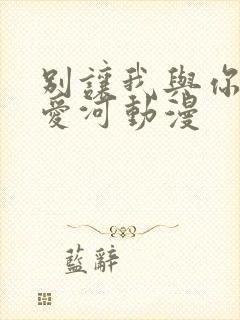 別讓我與你
愛河動漫
藍辭